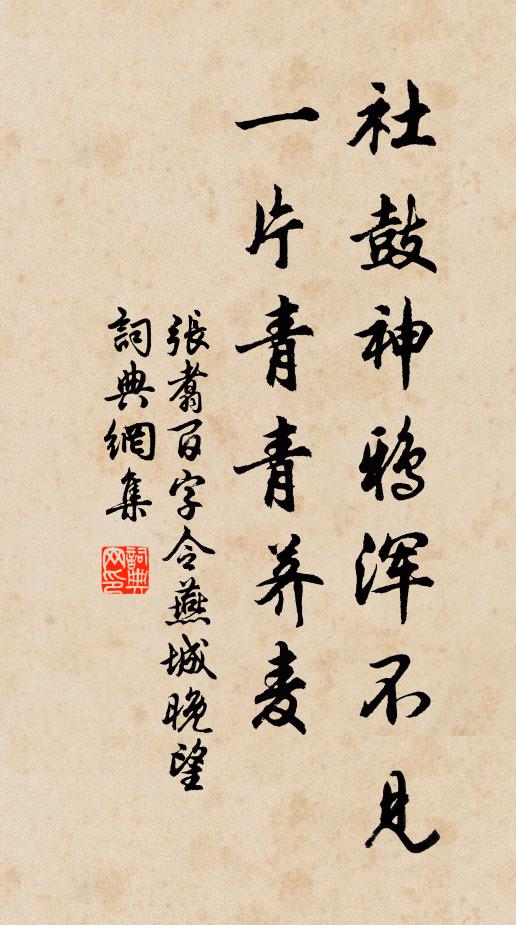 社鼓神鸦浑不见
一片青青荞麦
張翥百字令燕城晚望
詞典網集
詞典网印